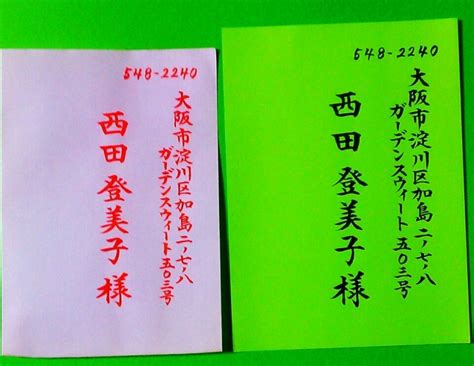 548-2240
大阪市淀川区加島二ノ七ノ八
ガーデンスウィート五〇三号
西田登美子様
548-2240
大阪市淀川区加島二ノ七ノ八
ガーデンスウィート五〇三号
西田登美子様